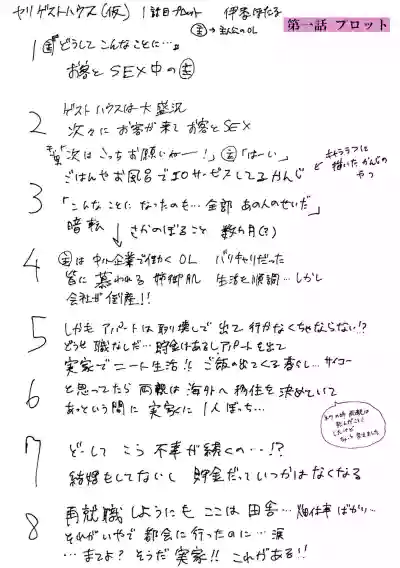 ヤリゲストハウス(仮) 1話目プロット 伊香ほたる
㊤→主人公のOL
第一話 プロット
1 ㊤「どうしてこんなことに…」
お客とSEX中の㊤
2 ゲストハウスは大盛況
次々にお客が来てお客とSEX
客「次はこっちお願いねー!」㊤「はーい」
ごはんやお風呂でエロサービスしてるかんじ
キャララフに描いたかんじのやつ
3 「こんなことになったのも…全部 あの人のせいだ」
暗転
↓さかのぼること 数ヶ月(?)
4 ㊤は中小企業で働くOL バリキャリだった
皆に慕われる姉御肌 生活も順調…しかし
会社が倒産!!
5 しかもアパートは取り壊しで出て行かなくちゃならない!?
どうせ職なしだ…貯金はあるしアパートを出て
実家でニート生活!! ご飯の出てくる暮らし…サイコー
6 と思ってたら両親は海外へ移住を決めていて
あっという間に実家に1人ぼっち…
7 どーしてこう不幸が続くの…!?
結婚もしてないし 貯金だっていつかはなくなる
8 再就職しようにもここは田舎…畑仕事ばかり…
それがいやで都会に行ったのに…涙
…まてよ? そうだ実家!! これがある!!